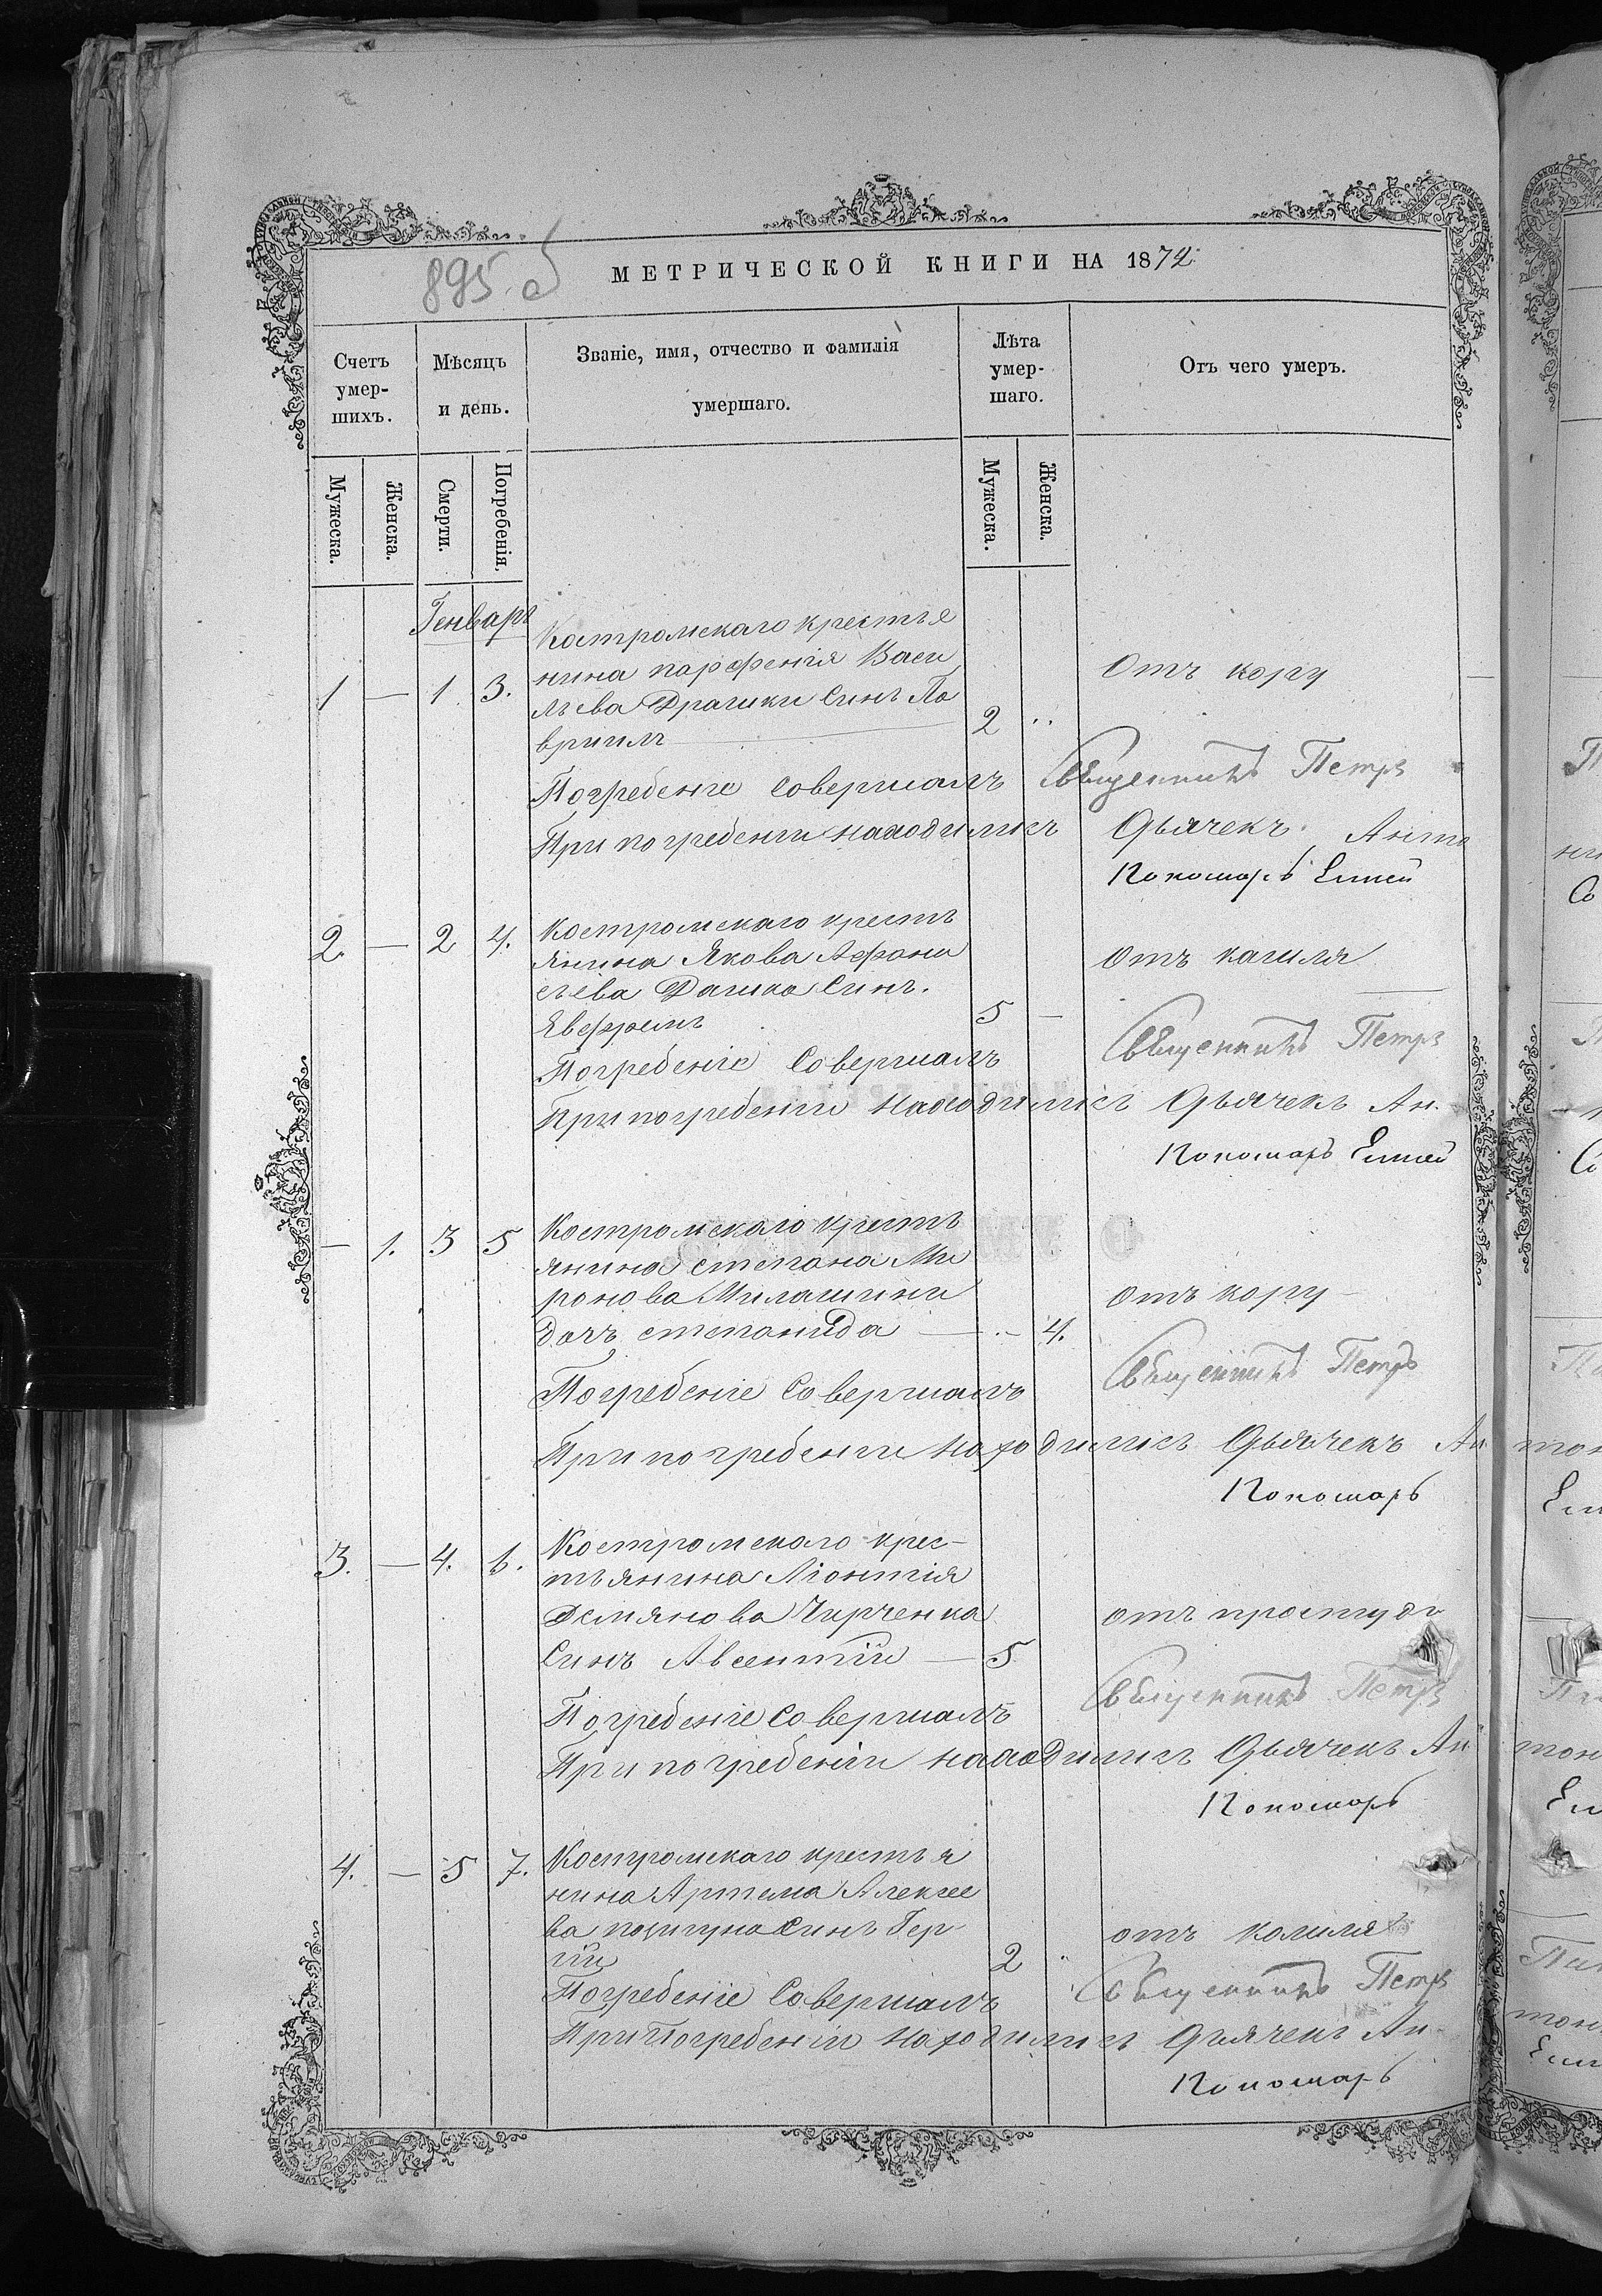 895 об
МЕТРИЧЕСКОЙ КНИГИ НА 1872
Счетъ умер-шихъ.
Мѣсяцъ и день.
Званіе, имя, отчество и фамилія умершаго.
Лѣта умер-шаго.
Отъ чего умеръ.
Мужеска.
Женска.
Смерти.
Погребенія.
Мужеска.
Женска.
Генварь
Костромскаго крестья
нина парфенія Васи
1 — 1 3.
Отъ кору
льева Драшки Синъ
вріилъ 2
Погребеніе Совершалъ Священникъ Петръ
При погребеніи находилисъ Дьячекъ Анто
Пономарь Елисей
2. — 2 4. Костромскаго кресть
янина Якова Афона
отъ кашля
сьева Дашка Синъ.
Евфремъ 5 —
Погребеніе Совершалъ Священникъ Петръ
При погребеніи находилисъ Дьячекъ Ан.
Пономарь Елисей
— 1. 3 5 Костромскаго кресть
янина степана Ми
ронова Милашини
отъ кору
дочъ степанида — 4.
Погребеніе Совершалъ Священникъ Петръ
При погребеніи находилисъ Дьячекъ Ан
Пономарь
3. — 4. 6. Костромскаго крес-
тьянина Ліонтія
Демянова Чирченка
отъ простуди
Синъ Авсентій — 5
Погребеніе Совершалъ Священникъ Петръ
При погребеніи находилисъ Дьячекъ Ан
Пономарь
4. — 5 7. Костромскаго крестья
нина Артема Алексее
ва Синъ Гер
отъ кашля
гій 2
Погребеніе Совершалъ Священникъ Петръ
При Погребеніи находилисъ Дьячекъ Ан
Пономарь